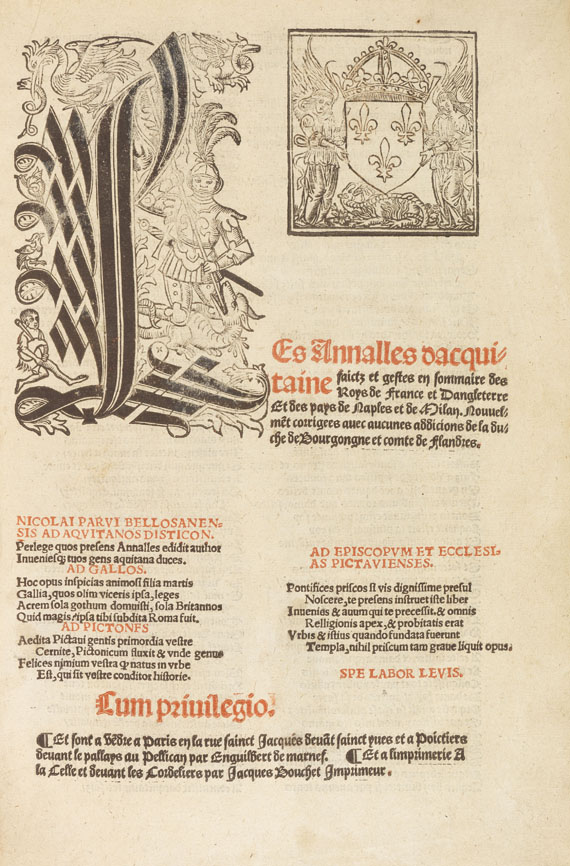 LEs Annalles dacqui-
taine faictz et gestes en sommaire des
Roys de France et Dangleterre
Et des pays de Naples et de Milan. Nouuel-
mẽt corrigees auec aucunes addicions de la du-
che de Bourgongne et comte de Flandres.
NICOLAI PARVI BELLOSANEN-
SIS AD AQVITANOS DISTICON.
Perlege quos presens Annalles edidit author
Inuenies q̃ tuos gens aquitana duces.
AD GALLOS.
Hoc opus inspicias animosi filia martis
Gallia, quos olim viceris ipsa, leges
Acrem sola gothum domuisti, sola Britannos
Quid magis ipsa tibi subdita Roma fuit.
AD PICTONES
Aedita Pictaui gentis primordia vestre
Cernite, Pictonicum fluxit & vnde genus
Felices nimium vestra q̃ natus in vrbe
Est, qui sit vestre conditor historie.
AD EPISCOPVM ET ECCLESI-
AS PICTAVIENSES.
Pontifices priscos si vis dignissime presul
Noscere, te presens instruet iste liber
Inuenies & auum qui te precessit. & omnis
Relligionis apex, & probitatis erat
Vrbis & istius quando fundata fuerunt
Templa, nihil priscum tam graue liquit opus.
SPE LABOR LEVIS.
Cum priuilegio.
¶Et sont a vẽdre a Paris en la rue sainct Jacques deuãt sainct yues et a Poictiers
deuant le pallays au Pellican par Enguilbert de marnef. ¶Et a limprimerie A
la Celle et deuant les Cordeliers par Jacques Bouchet Imprimeur.